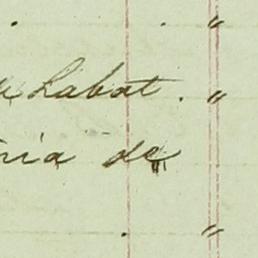 . . "
Labat . "
ria de
. "